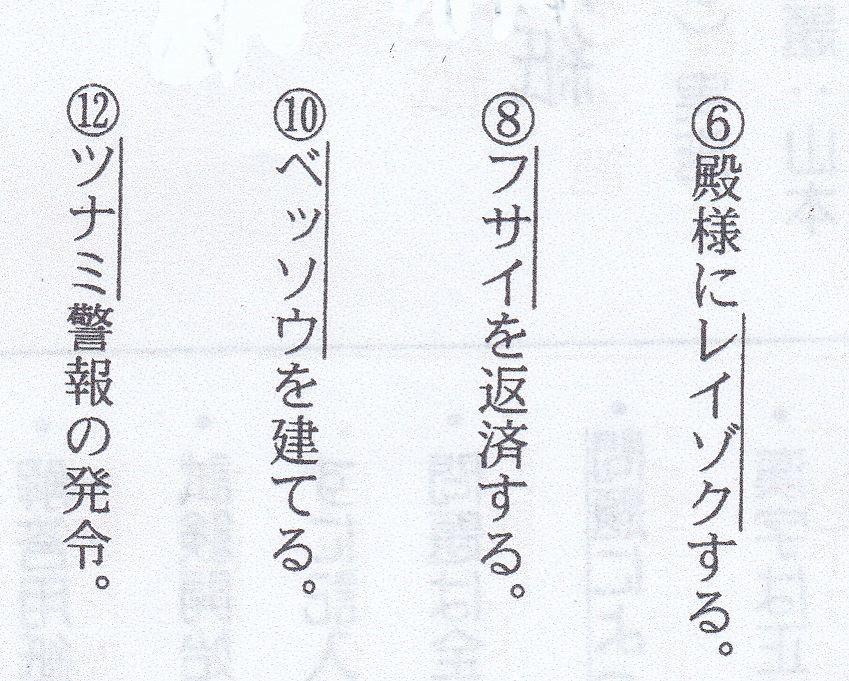 ⑥殿様にレイゾクする。
⑧フサイを返済する。
⑩ベッソウを建てる。
⑫ツナミ警報の発令。